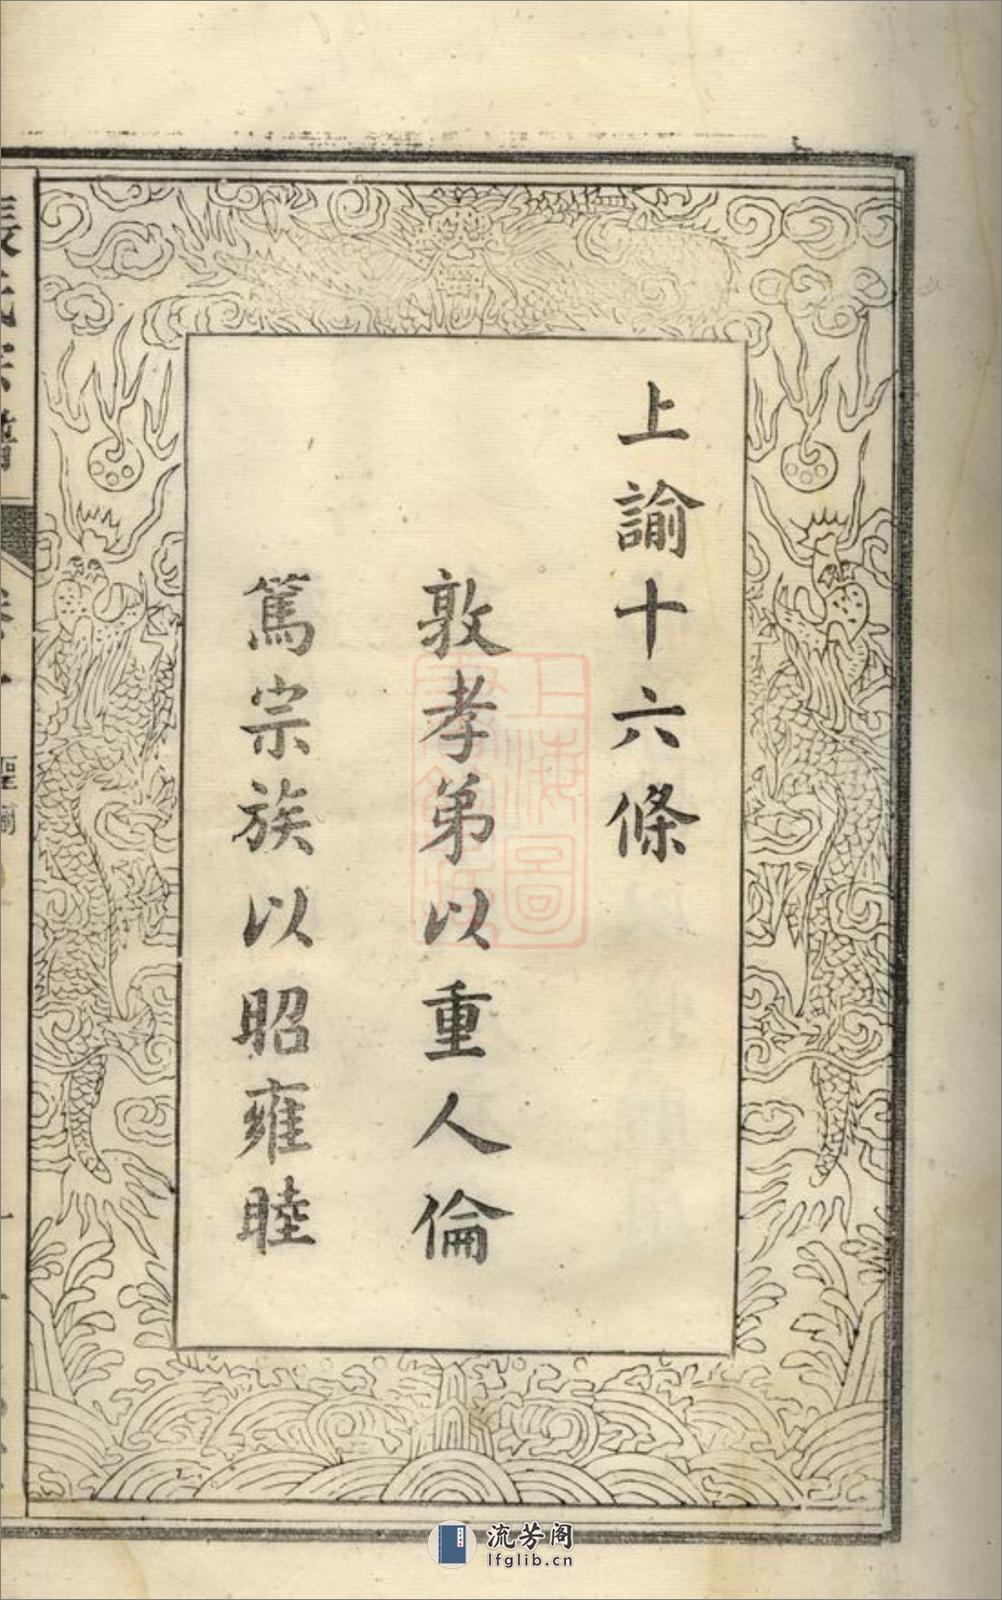 上諭十六條
敦孝弟以重人倫
篤宗族以昭雍睦
上海圖
流芳阁
lfglib.cn